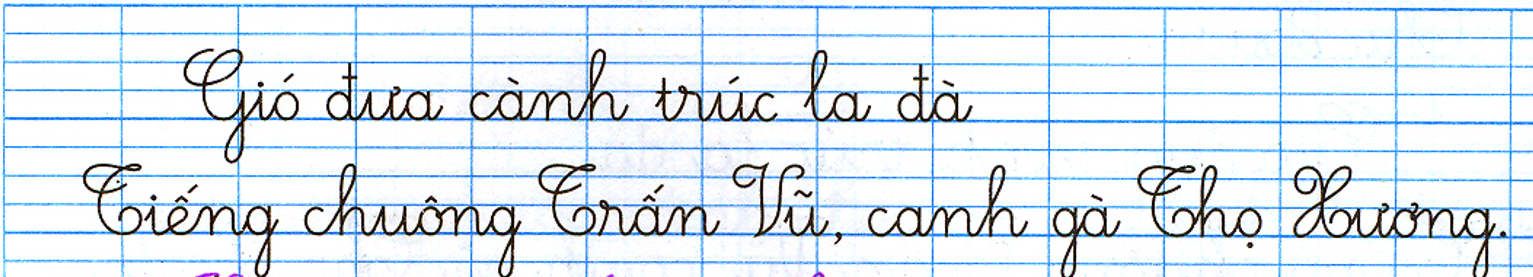 Gió đưa cành trúc la đà
Tiếng chuông Trấn Vũ, canh gà Thọ Xương.